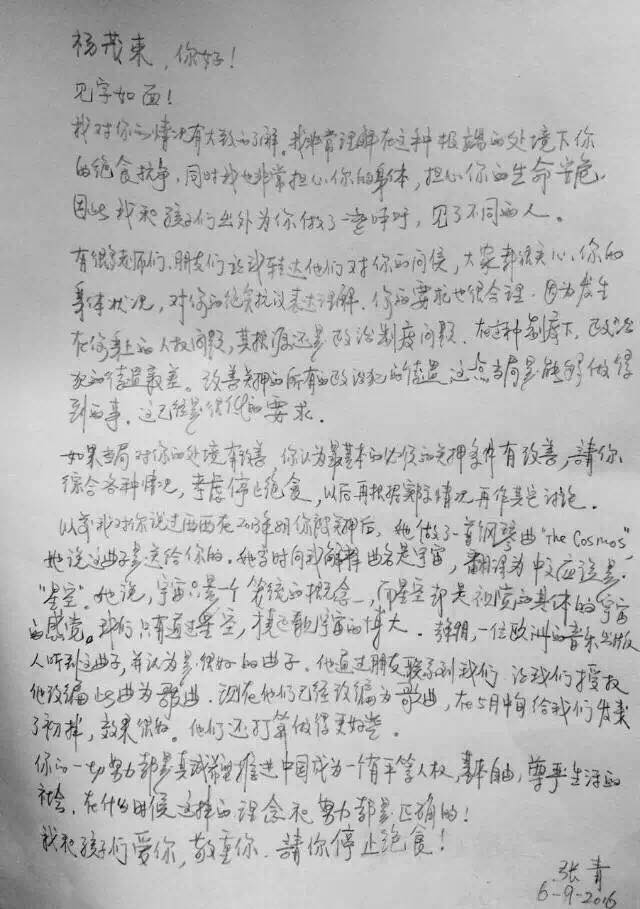 杨茂东，你好！
见字如面！
我对你的情况有大致的了解。我非常理解在这种极端的处境下你
的绝食抗争，同时我也非常担心你的身体，担心你的生命安危。
因此我和孩子们出外为你做了些呼吁，见了不同的人。
有很多老师们、朋友们让我转达他们对你的问候，大家都很关心你的
身体状况，对你的绝食抗议表达理解。你的要求也很合理。因为发生
在你身上的人权问题，其根源还是政治制度问题。在这种制度下，政治
犯的待遇最差。改善关押的所有的政治犯的待遇这点当局是能够做得
到的事。这已经是很低的要求。
如果当局对你的处境有改善，你认为最基本的必须的关押条件有改善，請你
综合各种情况，考虑停止绝食，以后再根据实际情况再作其它讨论。
以前我对你说过西西在2013年胡你被关押后，她做了一首钢琴曲"the Cosmos"，
她说这曲子是送给你的。她当时向我解释曲名是宇宙，翻译为中文应该是
"星空"。她说，宇宙只是一个笼统的概念，而星空却是视觉的具体的宇宙
的感觉。我们只有通过星空，才能宇宙的博大。一位欧洲的音乐出版
人听到这曲子，并认为是很好的曲子。他通过朋友联系到我们，让我们授权
他改编此曲为歌曲。现在他们已经改编为歌曲，在5月中旬给我们发来
了初样，效果很好。他们还打算做得更好些。
你的一切努力都是真诚希望推进中国成为一个有平等人权，基本自由，尊严生活的
社会。在什么时候这样的理念和努力都是正确的！
我和孩子们爱你，敬重你。請你停止绝食！
张青
6-9-2016